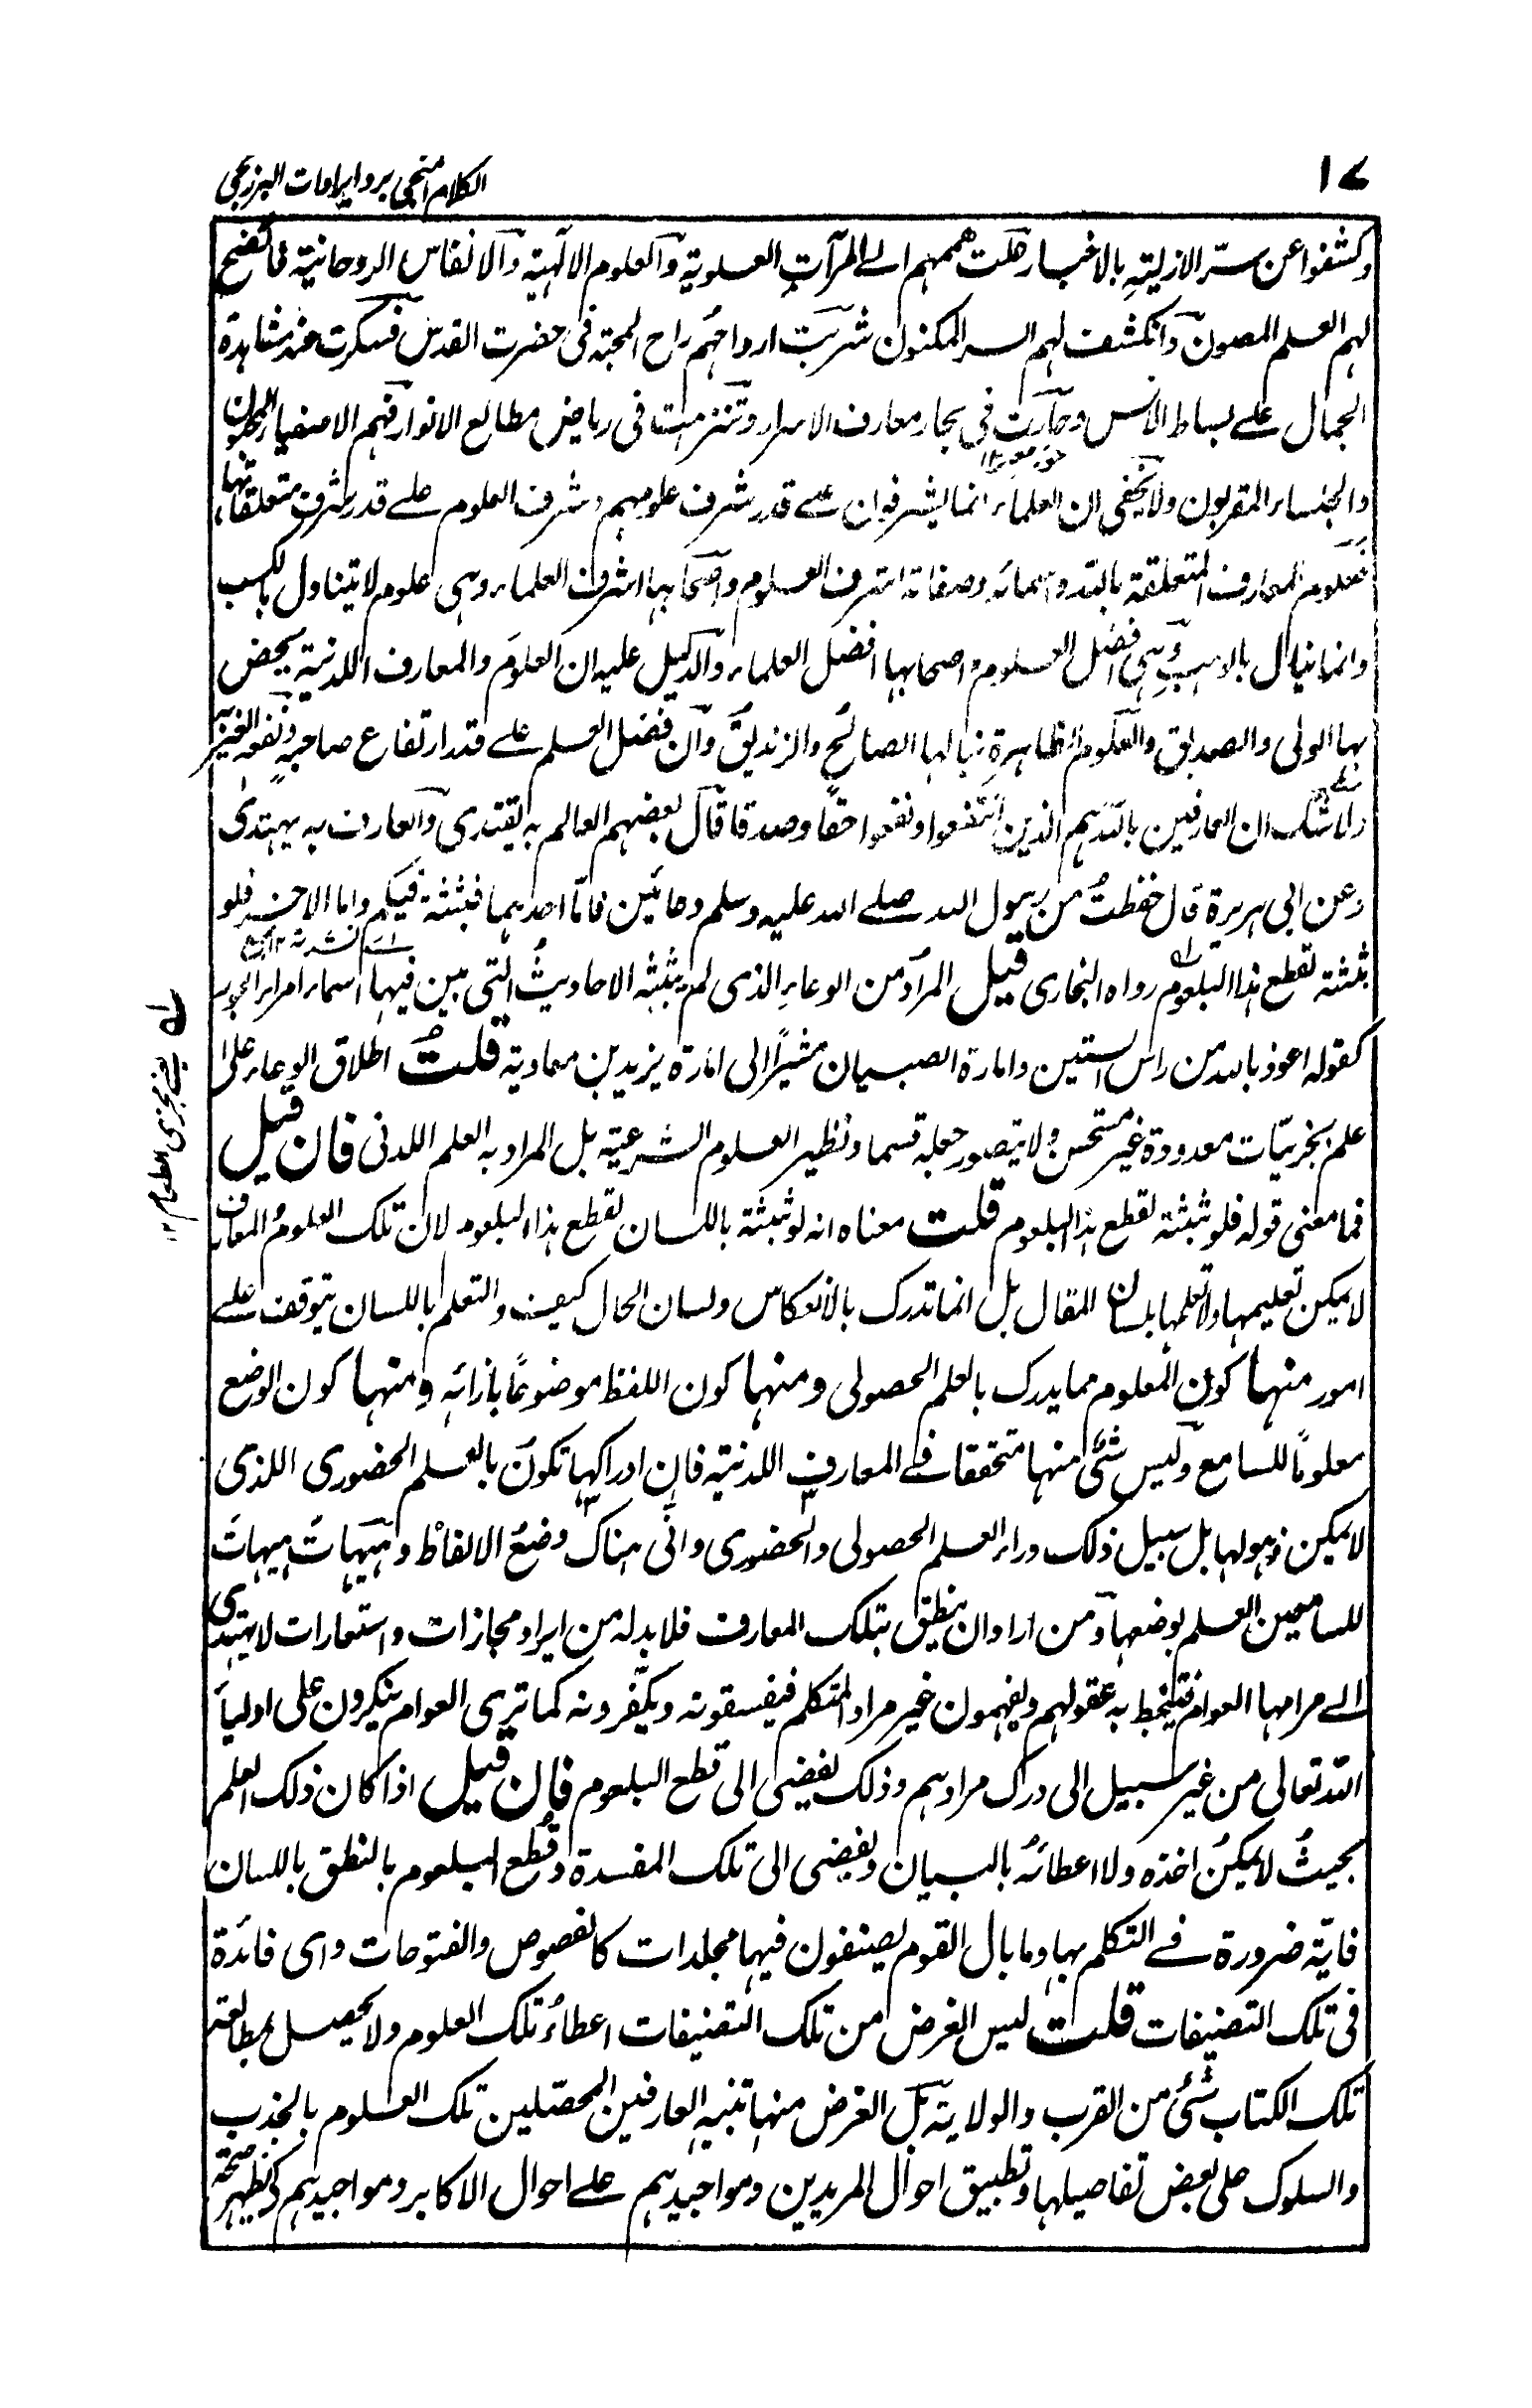 ١٧
الكلام المنجى برد ايرادات البرزنجى
وكشفوا عن ستر الازليته بالاخبار هلت هممهم الے المرآت العلوية والعلوم الالٰهية والانفاس الروحانية فاتضح
لهم العلم المصون وانكشف لهم السر المكنون شربت ارواحهم راح المحبة فى حضرت القدس فسكرت عند مشاهدة
الجمال علے بساط الانس وحارت فى بحار معارف الاسرار وتنزهت فى رياض مطالع الانوار فهم الاصفياء
والجلساء المقربون ولا يخفى ان العلماء انما يشرفون علے قدر شرف علومهم وشرف العلوم علے قدر شرف متعلقاتها
فعلوم المعارف المتعلقة بالله واسمائه وصفاته اشرف العلوم واصحابها اشرف العلماء وهى علوم لا يتناول بالكسب
وانما ينال بالوهب وهى افضل العلوم واصحابها افضل العلماء والدليل عليه ان العلوم والمعارف اللدنية يختص
بها الولى والصديق والعلوم الظاهرة ينالها الصالح والزنديق وان فضل العلم علے قدر ارتفاع صاحبه ونفعه لغيره
ولا شك ان العارفين بالله هم الذين انتفعوا ونفعوا حقا وصدقا قال بعضهم العالم به يقتدى والعارف به يهتدى
وعن ابى هريرة قال حفظت من رسول الله صلے الله عليه وسلم وعائين فاما احدهما فبثثته فيكم واما الاخر فلو
بثثته لقطع هذا البلعوم رواه البخارى قيل المراد من الوعاء الذى لم يبثثه الاحاديث التى بين فيها اسماء امراء الجور
كقوله اعوذ بالله من راس الستين وامارة الصبيان مشيرا الى امارة يزيد بن معاوية قلت اطلاق الوعاء على
علم بجزئيات معدودة غير مستحسن ولا يتصور جعله قسما ونظير العلوم الشرعية بل المراد به العلم اللدنى فان قيل
فما معنى قوله فلو بثثته لقطع هذا البلعوم قلت معناه انه لو بثثته باللسان لقطع هذا البلعوم لان تلك العلوم المعارف
لا يمكن تعليمها ولا تعلمها بلسان المقال بل انما تدرك بالانعكاس ولسان الحال كيف والتعلم باللسان يتوقف علے
امور منها كون المعلوم مما يدرك بالعلم الحصولى ومنها كون اللفظ موضوعا بازائه ومنها كون الوضع
معلوما للسامع وليس شئ منها متحققا فے المعارف اللدنية فان ادراكها تكون بالعلم الحضورى اللذى
لا يمكن ذهولها بل سبيل ذلك وراء العلم الحصولى والحضورى وانى هناك وضع الالفاظ وهيهات هيهات
للسامعين العلم بوضعها ومن اراد ان ينطق بتلك المعارف فلا بد له من ايراد مجازات واستعارات لا يهتدى
الے مرامها العوام فتخبط به عقولهم ويفهمون غير مراد المتكلم فيفسقونه ويكفرونه كما ترى العوام ينكرون على اولياء
الله تعالى من غير سبيل الى درك مرادهم وذلك يفضى الى قطع البلعوم فان قيل اذا كان ذلك العلم
بحيث لا يمكن اخذه ولا اعطائه بالبيان ويفضى الى تلك المفسدة وقطع البلعوم بالنطق باللسان
فاية ضرورة فے التكلم بها وما بال القوم يصنفون فيها مجلدات كالفصوص والفتوحات واى فائدة
فى تلك التصنيفات قلت ليس الغرض من تلك التصنيفات اعطاء تلك العلوم ولا يحصل بمطالعة
تلك الكتاب شئ من القرب والولاية بل الغرض منها تنبيه العارفين المحصلين تلك العلوم بالجذب
والسلوك على بعض تفاصيلها وتطبيق احوال المريدين ومواجيدهم علے احوال الاكابر ومواجيدهم ليظهر صحة
يعنے مجرى الطعام ١٢